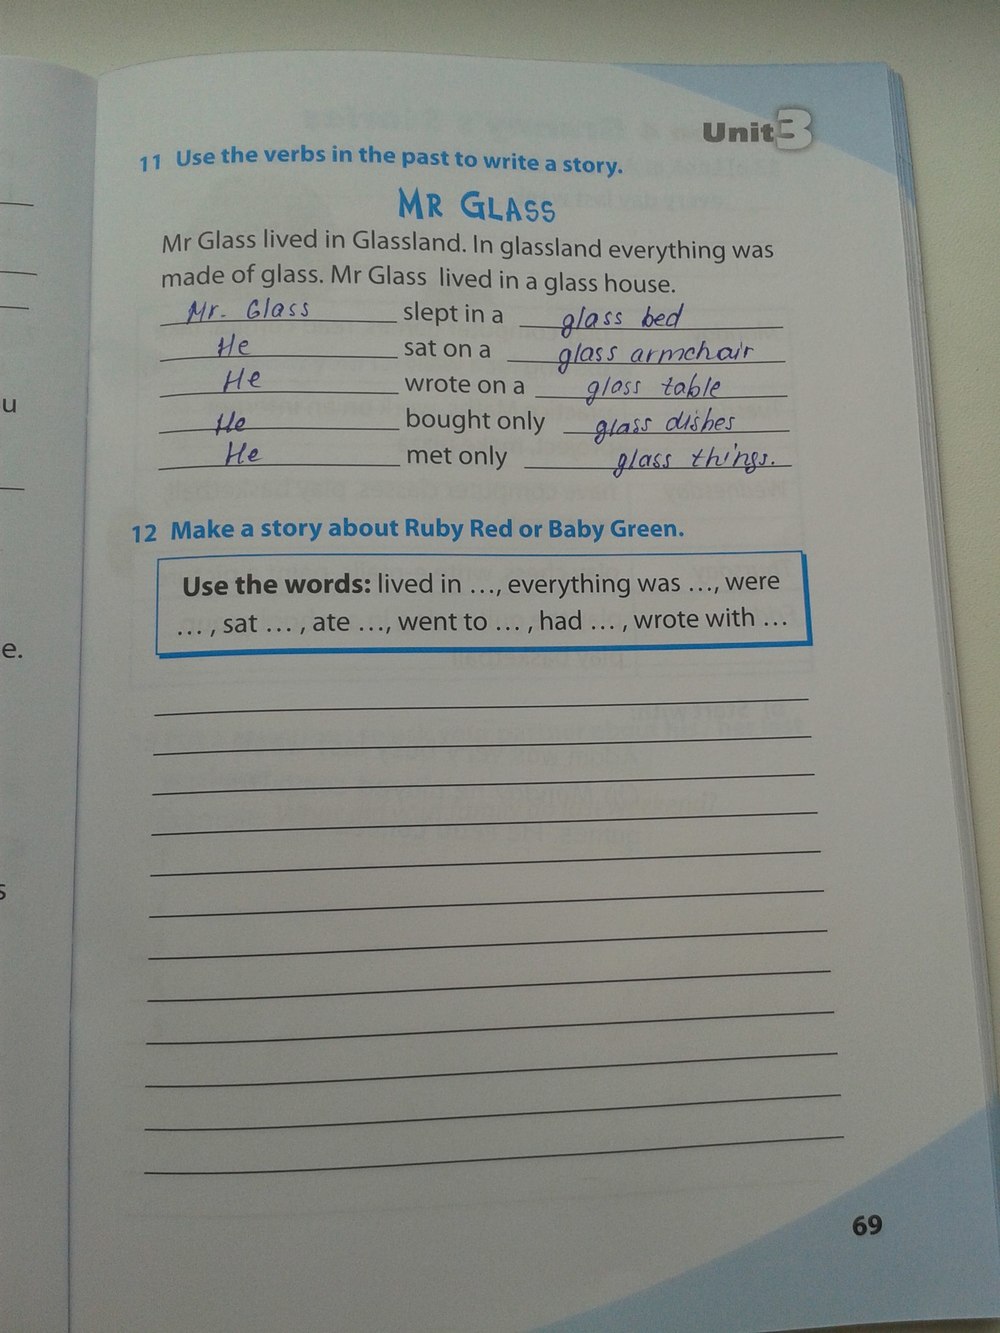 Unit 3
11 Use the verbs in the past to write a story.
MR GLASS
Mr Glass lived in Glassland. In glassland everything was
made of glass. Mr Glass lived in a glass house.
Mr. Glass slept in a glass bed
He sat on a glass armchair
He wrote on a glass table
He bought only glass dishes
He met only glass things.
u
12 Make a story about Ruby Red or Baby Green.
Use the words: lived in ..., everything was ..., were
... , sat ... , ate ..., went to ... , had ... , wrote with ...
e.
s
69